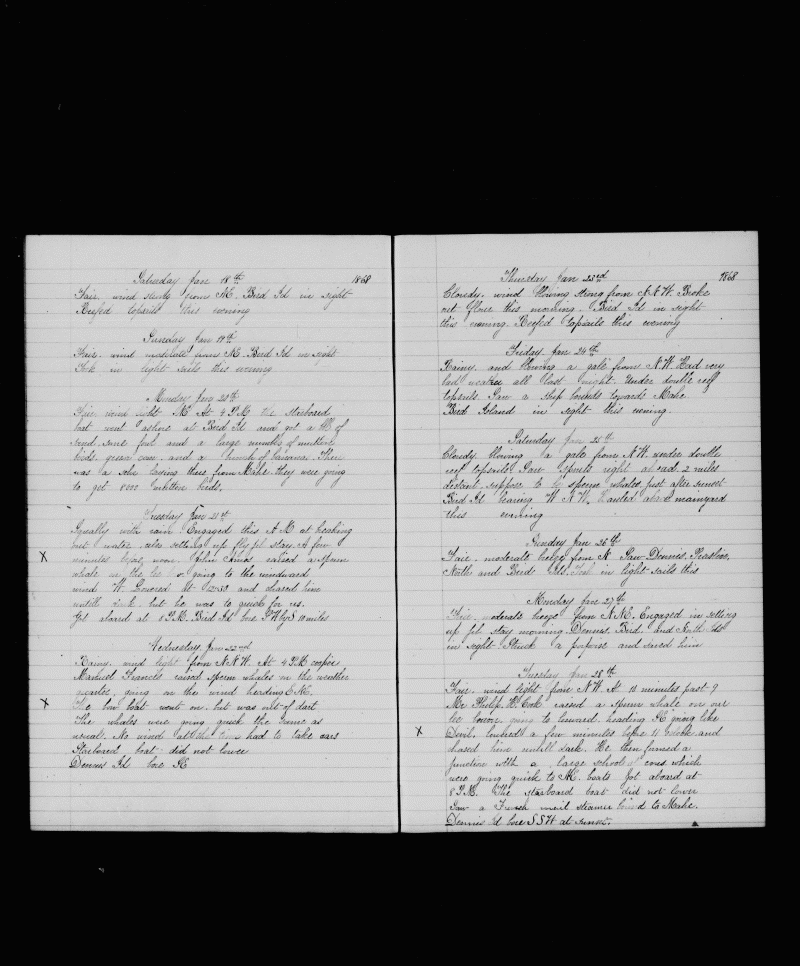 Saturday Jan 18th 1868
Fair wind from NE. Bird Id in sight
Reefed topsails this evening
Sunday Jan 19th
Fair. wind moderate from NE Bird Id in sight
Took in light sails this evening
Monday Jan 20th
Fair wind light NE At 4 P.M. the starboard
boat went ashore at Bird Id and got a of
sand, some fowl and a large number of mutton
birds, green and a bunch of banana. There
was a laying there from Mahe. they were going
to get 8000 mutton birds.
Tuesday Jan 21st
Squally with rain Engaged this A.M. at breaking
out water, also setting up flyjib stay. A few
minutes before noon John raised a sperm
whale on the lee going to the windward
wind W. Lowered at 12-30 and chased him
untill dark. but he was to quick for us.
Got aboard at 8 P.M. Bird Id bore 10 miles
X
Wednesday Jan 22nd
Rainy. wind light from N.N.W. At 4 P.M. cooper
Manuel Francis raised sperm whales on the weather
quarter, going on the wind heading E.N.E.
The bow boat went on. but was out of dart
The whales were going quick the same as
usual. No wind at the time had to take oars
Starboard boat did not lower
Dennis Id bore
X
Thursday Jan 23rd 1868
Cloudy. wind blowing strong from N N W. Broke
out flour this morning. Bird Id in sight
this evening. Reefed topsails this evening
Friday Jan 24th
Rainy, and blowing a gale from N.W. Had very
bad weather all last night. Under double reef
topsails. Saw a ship bound towards Mahe.
Bird Island in sight this evening.
Saturday Jan 25th
Cloudy blowing a gale from N.W. under double
reef topsails. Saw spouts right ahead 2 miles
distant. suppose to be sperm whales, just after sunset
Bird Id bearing W N W. Hauled aback mainyard
this evening
Sunday Jan 26th
Fair. moderate breeze from N Saw Dennis,
North and Bird Ids. Took in light sails this
Monday Jan 27th
Fair, moderate breeze from N.N.E. Engaged in setting
up jib stay morning. Dennis, Bird, and North Ids
in sight. Struck a porpoise and saved him
Tuesday Jan 28th
Fair. wind light from N.W. At 10 minutes past 9
Mr Philip H. Cook raised a sperm whale one our
lee going to leeward. heading going like
Devil. lowered a few minutes before 11 oclock and
chased him untill dark. He then formed a
junction with a large school of cows. which
were going quick to boats got aboard at
8 P.M. The starboard boat did not lower
Saw a French mail steamer bound to Mahe.
Dennis Id bore S S W at sunset.
X